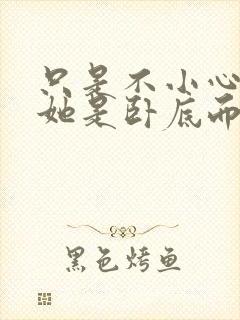 只是不小心
她是卧底而
黑色烤鱼